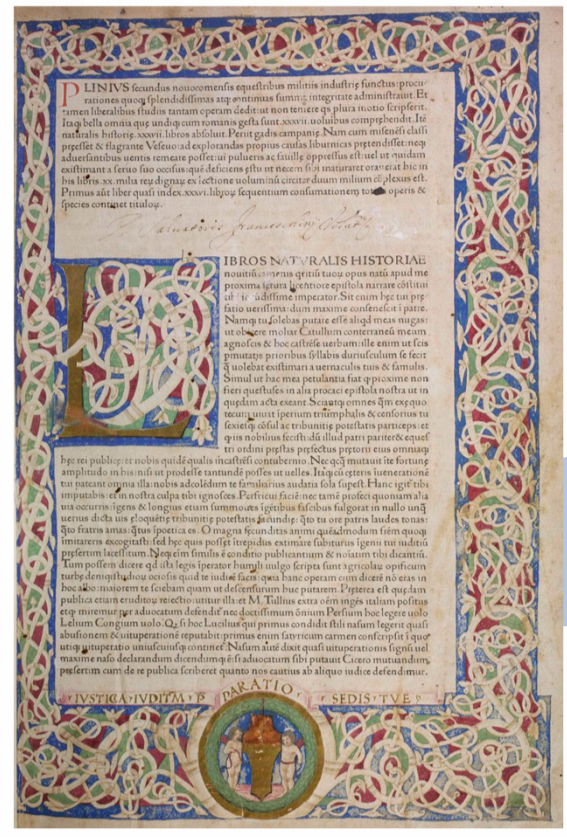 PLINIUS secundus nouocomensis equestribus militiis industrie functus: procu-
rationes quoq splendidissimas atq continuas summa integritate administrauit. Et
tamen liberalibus studiis tantam operam dedit: ut non temere qs plura in otio scripserit.
Itaq bella omnia que unq cum romanis gesta sunt .xxxvii. uoluibus comprehendit. Ite
naturalis historie .xxxvii. libros absoluit. Periit gadis campanie. Nam cum misenesi classi
preesset & flagrante Veseuo ad explorandas propius causas liburnicas pretendisset: neq
aduersantibus uentis remeare posset: ui pulueris ac fauille oppressus est: uel ut quidam
existimant a seruo suo occisus: que deficiens estu ut necem sibi maturaret orauerat hic in
his libris .xx. milia reru dignaru ex lectione voluminu circiter duum milium coplexus est.
Primus aut liber quasi index .xxxvi. libroru sequentium consumationem totius operis &
species continet tituloru.
LIBROS NATVRALIS HISTORIAE
nouitiu camenis qritiu tuoru opus natu apud me
proxima fetura licentiore epistola narrare costitui
tibi iucudissime imperator. Sit enim hec tui pre-
fatio uerissima: dum maximo consenescit i patre.
Namq tu solebas putare esse aliqd meas nugas:
ut obiicere moliar Catullum conterraneu meum
agnoscis & hoc castrese uerbum: ille enim ut scis
pmutatis prioribus syllabis duriusculum se fecit
q uolebat existimari a uernaculis tuis & famulis.
Simul ut hac mea petulantia fiat q proxime non
fieri questus es in alia procaci epistola nostra ut in
quedam acta exeant. Sciantq omnes qm ex equo
tecu uiuat iperium triumphalis & censorius tu
sexiesq cosul ac tribunitie potestatis particeps: et
qiis nobilius fecisti: du illud patri pariter & eques
tri ordini prestas prefectus pretorii eius omniaq
hec rei publice: et nobis quide qualis in castresi contubernio. Nec qcq mutauit i te fortune
amplitudo in his: nisi ut prodesse tantunde posses ut uelles. Itaq cu ceteris i ueneratione
tui pateant omnia illa: nobis ad coledum te familiarius audatia sola supest. Hanc igit tibi
imputabis: et in nostra culpa tibi ignosces. Perfricui facie: nec tame profeci quoniam alia
uia occurris igens & longius etium summoues igetibus fascibus fulgorat in nullo unq
uerius dicta uis eloquetie tribunitie potestatis facundie: qto tu ore patris laudes tonas:
qto fratris amas: qtus i poetica es. O magna fecunditas animi queadmodum frem quoq
imitareris excogitasti: sed hec quis posset itrepidus extimare subiturus igenii tui iuditiu
presertim lacessitum. Neq eim similis e conditio publicantium & noiatim tibi dicantiu.
Tum possem dicere qd ista legis iperator humili uulgo scripta sunt agricolaru opificum
turbe deniq studioru ociosis quid te iudice facis: quia hanc operam cum dicere no eras in
hoc albo: maiorem te sciebam quam ut descensurum huc putarem. Preterea est quedam
publica etiam eruditoru reiectio: utitur illa: et M. Tullius extra oem ingenii italiam positus
et q miremur per aduocatum defendit nec doctissimum omnium Persium hoc legere uolo
Lelium Congium uolo. Qz si hoc Lucilius qui primus condidit stili nasum legerit quasi
abusionem & uituperatione reputabit: primus enim satyricum carmen conscripsit i quo
utiq uituperatio uniuscuiusq continet. Nasum aute dixit quasi uituperationis signu uel
maxime naso declarandum dicendumq e si aduocatum sibi putaui Cicero mutuandum,
presertim cum de re publica scriberet quanto nos cautius ab aliquo iudice defendimur.
IVSTICA · IVDITM · P PARATIO SEDIS · TVE